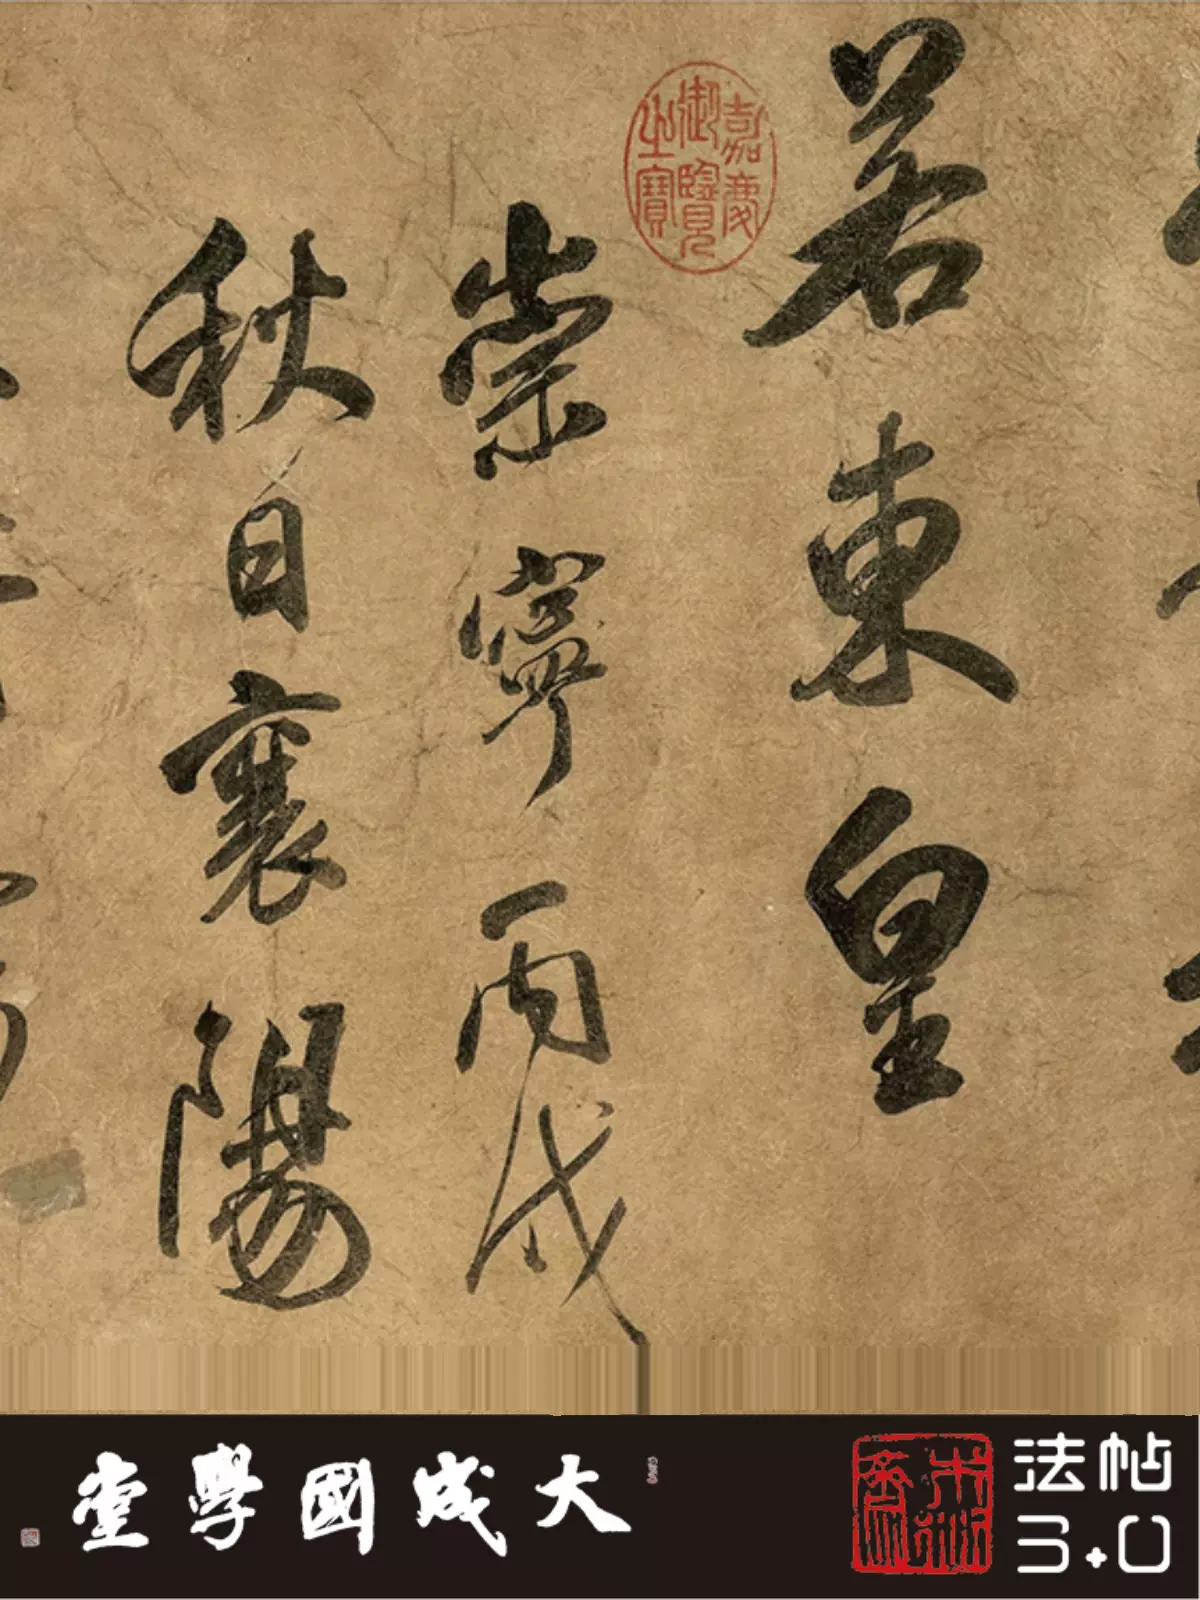 若東皇
嘉慶
御覽
之寶
崇寧丙戌
秋日襄陽
大成國學堂
法帖
3.0